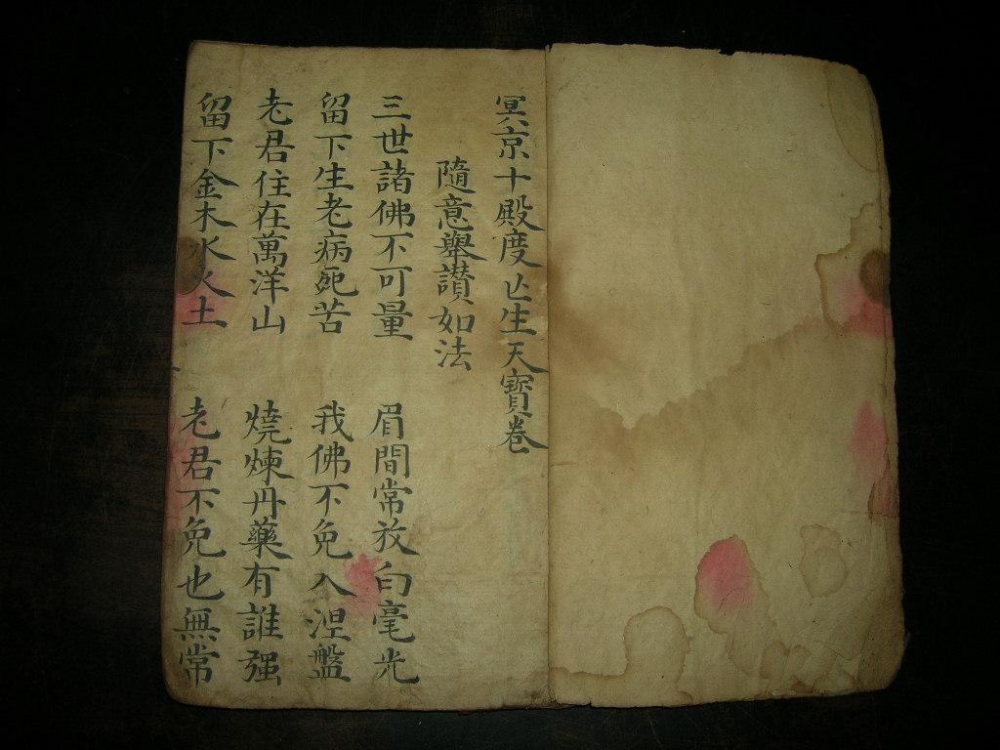 冥京十殿度亡生天寳卷
隨意舉讃如法
三世諸佛不可量 眉間常放白毫光
留下生老病死苦 我佛不免入涅盤
老君住在萬洋山 燒煉丹藥有誰强
留下金木水火土 老君不免也無常